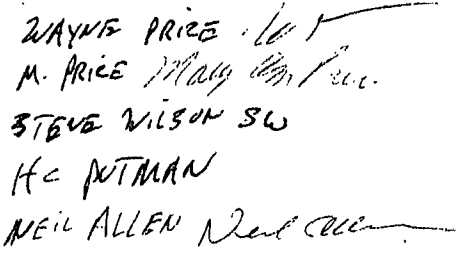 WAYNE PRICE
M. PRICE Mary Ann Price
STEVE WILSON SW
HC PUTMAN
NEIL ALLEN Neil Allen